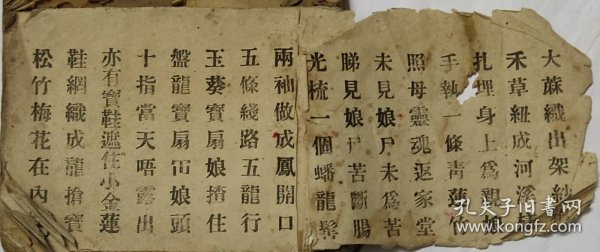 大蔴織出架紗
禾草紐成河
扎埋身上為親
手執一條青蓮
照母靈魂返家堂
未見娘尸未為苦
睇見娘尸苦斷腸
光梳一個蟠龍髻
兩袖做成鳳開口
五條綫路五龍行
玉葵寶扇娘揸住
盤龍寶扇冚娘頭
十指當天唔露出
亦有寶鞋遮住小金蓮
鞋綑織成龍搶寶
松竹梅花在內
孔夫子旧书网
www.kongfz.com